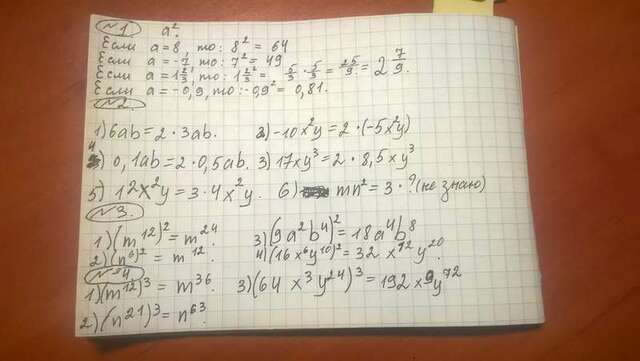 №1 a².
Если a=8, то: 8² = 64
Если a=-7, то: 7² = 49
Если a=1 2/3, то: 1 2/3² = 5/3 · 5/3 = 25/9 = 2 7/9.
Если a=-0,9, то: -0,9² = 0,81.
№2.
1) 6ab = 2 · 3ab. 2) -10x²y = 2 · (-5x²y)
4) 0,1ab = 2 · 0,5ab. 3) 17xy³ = 2 · 8,5xy³
5) 12x²y = 3 · 4x²y. 6) mn² = 3 · ? (не знаю)
№3.
1) (m¹²)² = m²⁴ 3) (9a²b⁴)² = 18a⁴b⁸
2) (n⁶)² = m¹². 4) (16x⁶y¹⁰)² = 32x¹²y²⁰.
№4
1) (m¹²)³ = m³⁶. 3) (64x³y²⁴)³ = 192x⁹y⁷²
2) (n²¹)³ = n⁶³.